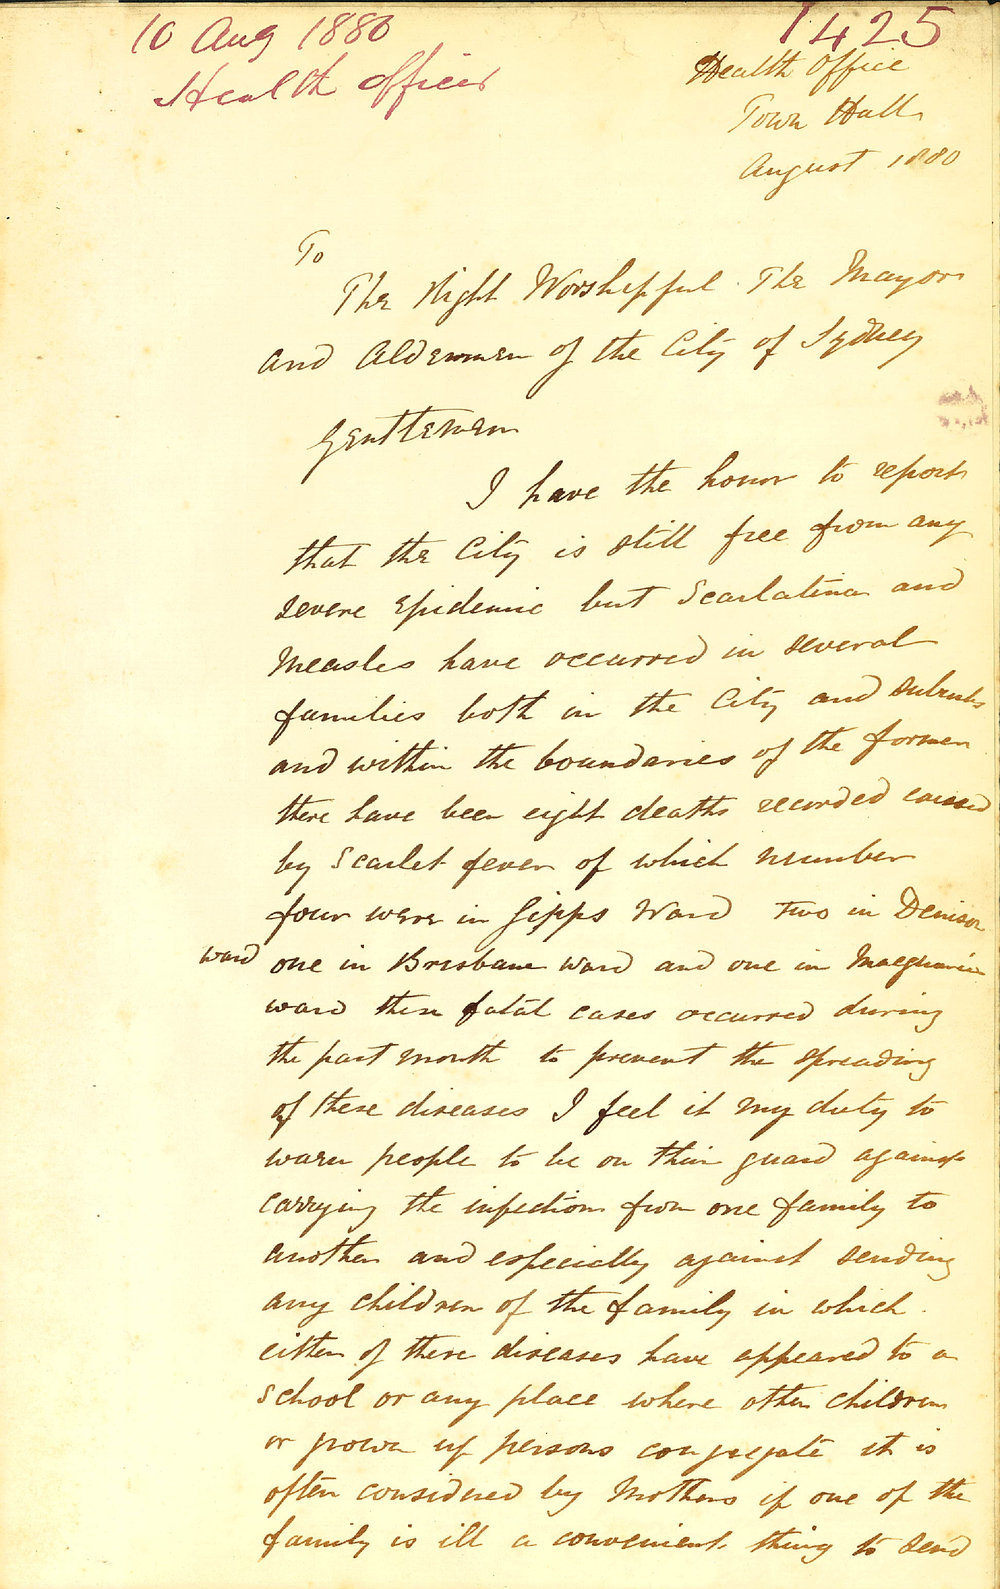 10 Aug 1880
Health Officer
1425
Health Office
Town Hall
August 1880
To
The Right Worshipful The Mayor
and Aldermen of the City of Sydney
Gentlemen
I have the honor to report
that the City is still free from any
severe Epidemic but Scarlatina and
Measles have occurred in several
families both in the City and suburbs
and within the boundaries of the former
there have been eight deaths recorded caused
by Scarlet fever of which number
four were in Gipps Ward two in Denison
ward one in Brisbane ward and one in Macquarie
ward these fatal cases occurred during
the past month to prevent the spreading
of these diseases I feel it my duty to
warn people to be on their guard against
carrying the infection from one family to
another and especially against sending
any children of the family in which
either of these diseases have appeared to a
School or any place where other children
or grown up persons congregate it is
often considered by Mothers if one of the
family is ill a convenient thing to send